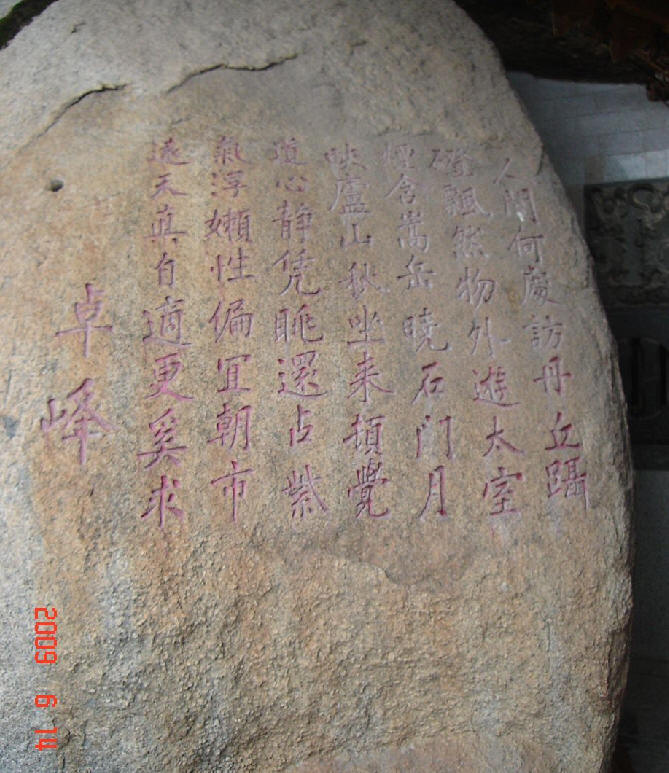 人間何處訪丹丘躡
磴飄然物外遊太室
煙含嵩岳曉石門月
映廬山秋坐來頓覺
道心靜凭眺還占紫
氣浮嬾性偏宜朝市
遠天真自適更奚求
卓峰
2009 6 14